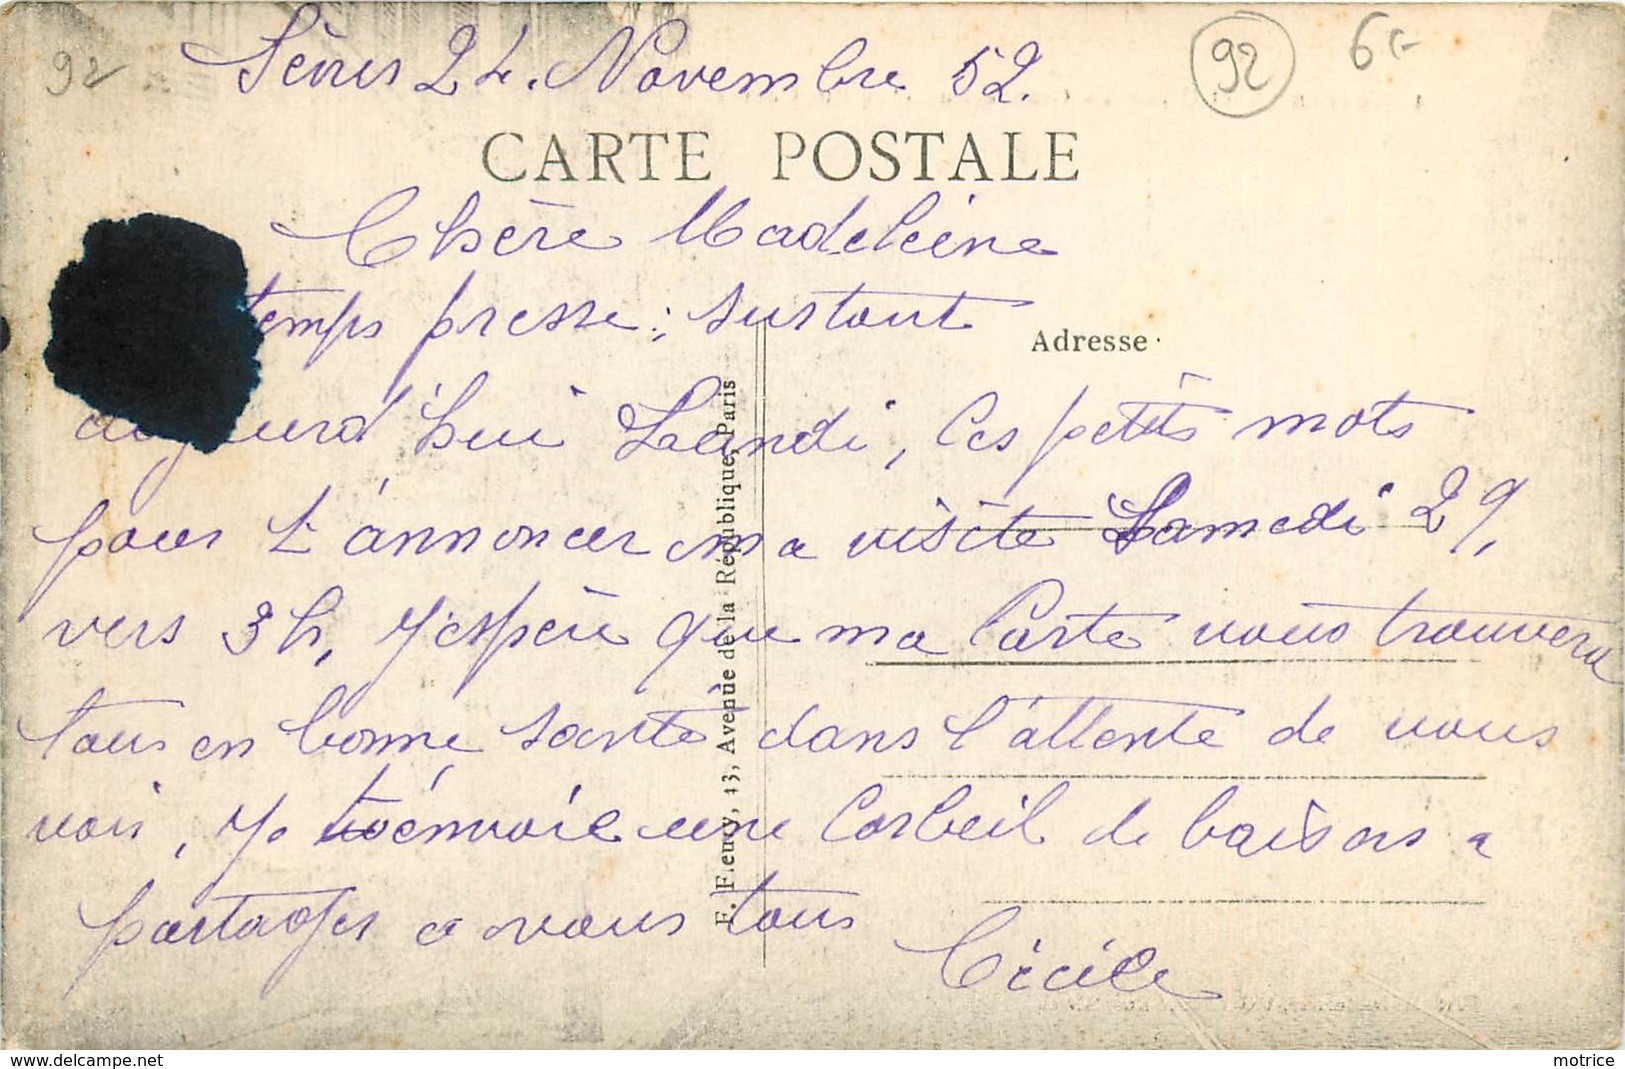 92
Sèvres 24. Novembre 52.
92
6€
CARTE POSTALE
Chère Madeleine
temps presse; surtout
Adresse
aujourd'hui Lundi, Ces petits mots
pour t'annoncer ma visite Samedi 29,
vers 3h, J'espère que ma Carte vous trouvera
tous en bonne santé dans l'attente de vous
voir, Je t'envoie une Corbeil de baisers a
partager a vous tous
Cécile
F. Fleury, 13, Avenue de la République, Paris
www.delcampe.net
motrice